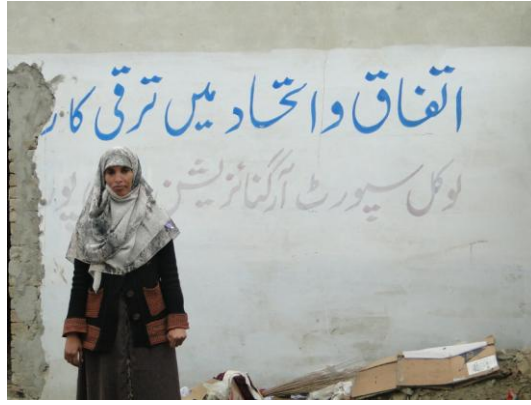 اتفاق و اتحاد میں ترقی کا
لوکل سپورٹ آرگنائزیشن